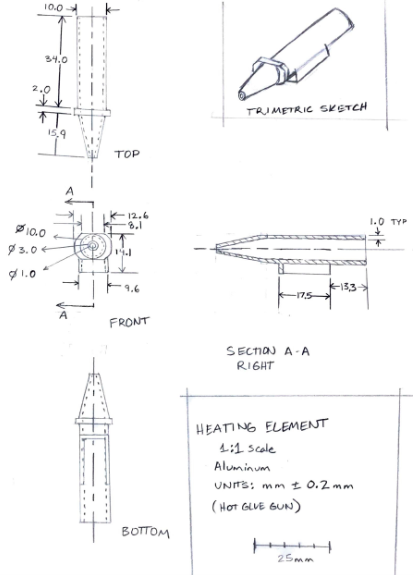 10.0
34.0
2.0
15.9
TOP
TRIMETRIC SKETCH
A
Ø10.0
Ø3.0
Ø1.0
12.6
8.1
14.1
9.6
A
FRONT
1.0 TYP
17.5
13.3
SECTION A-A
RIGHT
BOTTOM
HEATING ELEMENT
1:1 Scale
Aluminum
UNITS: mm ± 0.2mm
(HOT GLUE GUN)
25mm